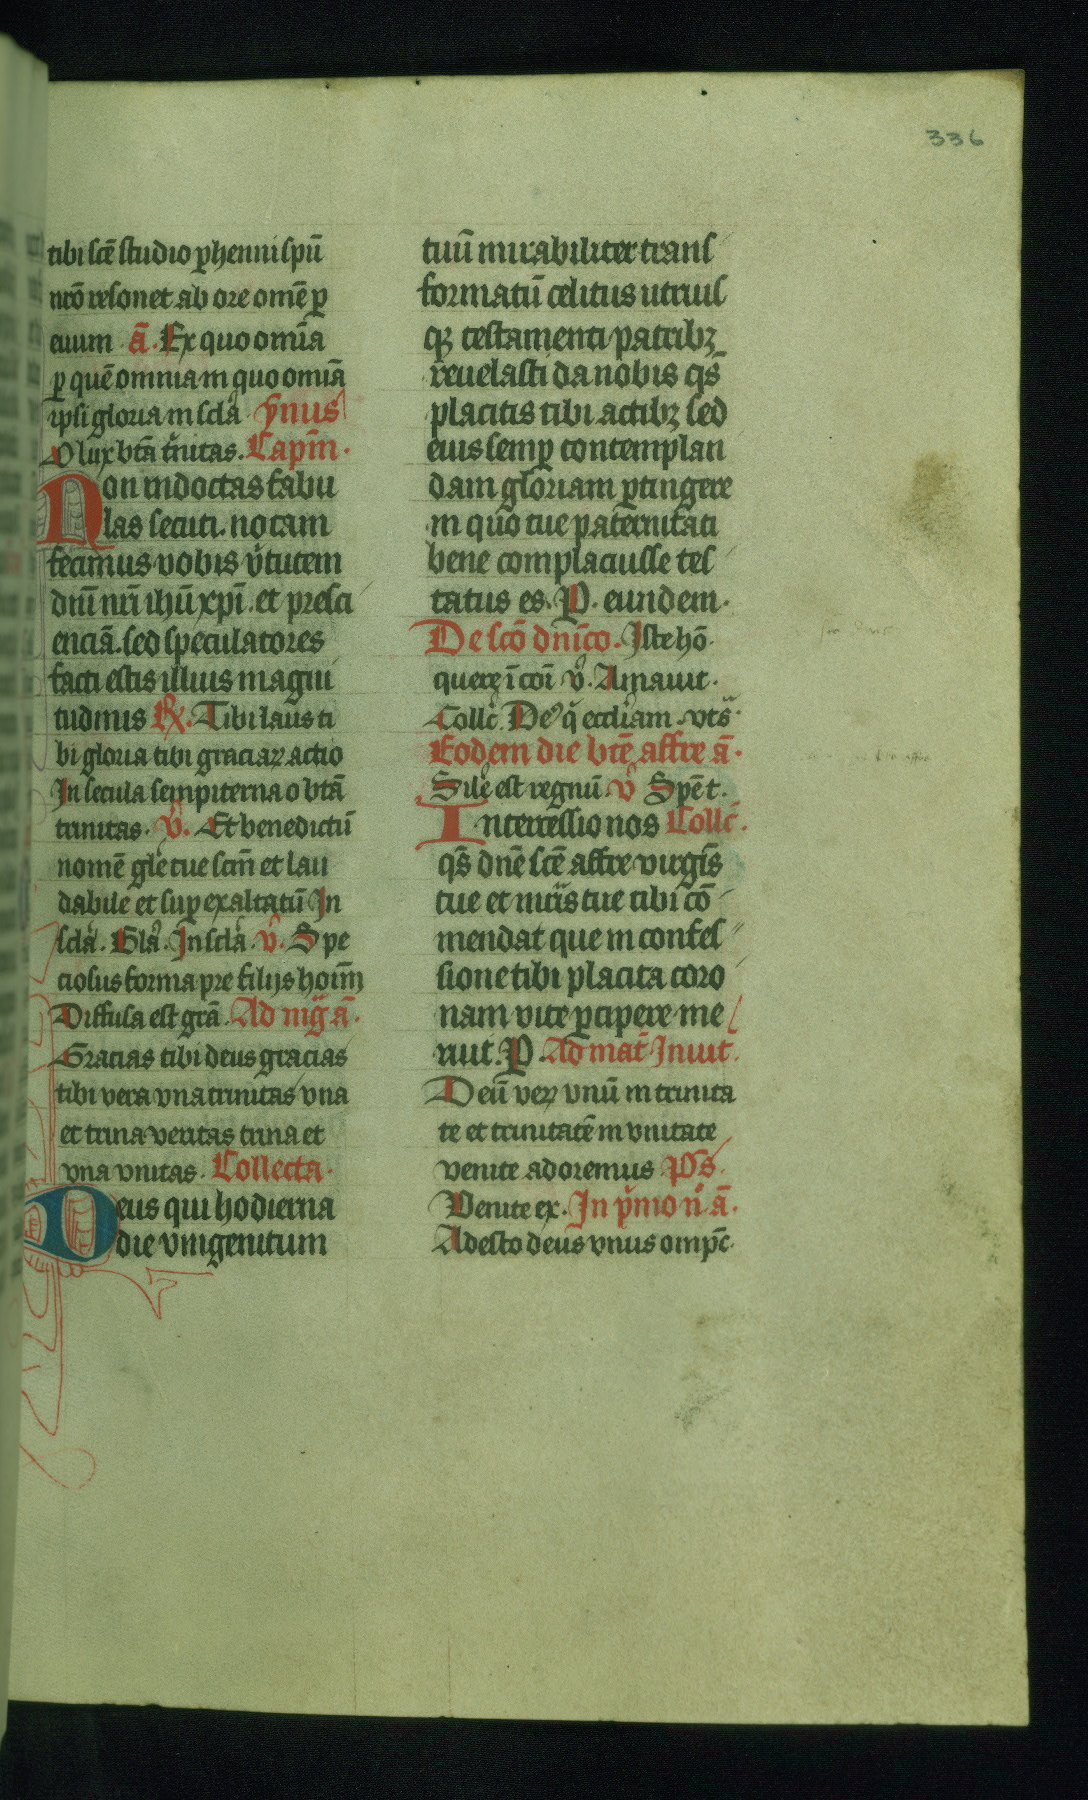 336
tibi scē studio ꝑhenni spū
ncō resonet ab ore omē ꝑ
euum ā. Ex quo omīa
ꝑ quē omnia in quo omīa
ipsi gloria in sclā ẏmnus
O lux btā trinitas. Capm̄.
Non indoctas fabu
las secuti. notam
fecimus vobis v̇tutem
dnī nrī ihū xpī. et presci
enciā. sed speculatores
facti estis illius magni
tudinis ℟. Tibi laus ti
bi gloria tibi graciaꝝ actio
In secula sempiterna o btā
trinitas. ṽ. Et benedictū
nomē glē tue scm̄ et lau
dabile et suꝑexaltatū In
sclā. Glā. In sclā. ṽ. Spe
ciosus forma pre filijs hoīm
Diffusa est grā. Ad mgā̄.
Gracias tibi deus gracias
tibi vera vna trinitas vna
et trina veritas trina et
vna vnitas. Collecta.
Deus qui hodierna
die vnigenitum
tuū mirabiliter trans
formatū celitus utrius
qꝫ testamenti patribꝫ
reuelasti da nobis qs̄
placitis tibi actibꝫ sed
eius semꝑ contemplan
dam gloriam ꝑtingere
in quo tue paternitati
bene complacuisse tes
tatus es. P. eundem.
De scō dnīco. Iste hō.
quere ī coī ṽ. Amauit.
Collc̄. Deꝰ q̄ eccliam. vt sͣ.
Eodem die btē affre ā.
Silē est regnū. ṽ Spē t.
Intercessio nos Collc̄.
qs̄ dnē scē affre virgīs
tue et mr̄is tue tibi cō
mendat que in confes
sione tibi placita coro
nam vite ꝑcipere me
ruit. P. Ad mat̄ Inuit.
Deū veꝝ vnū in trinita
te et trinitatē in vnitate
venite adoremus p̄s.
Venite ex. In p̄mo n̄ ā.
Adesto deus vnus omp̄c.